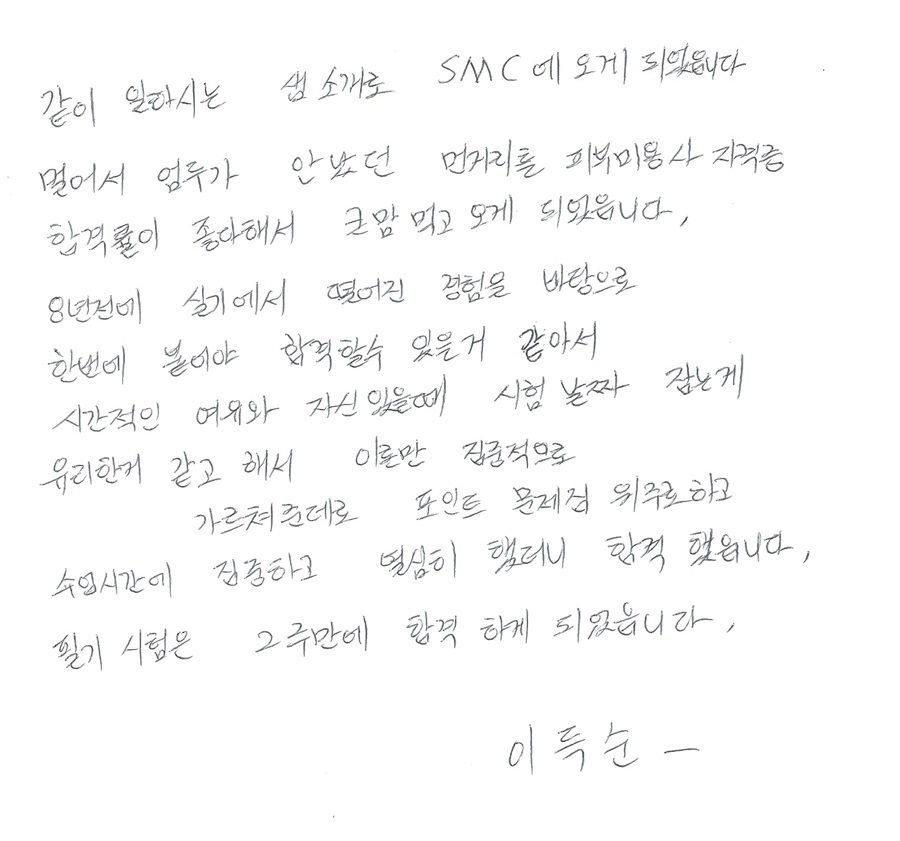 같이 일하시는 샘 소개로 SMC에 오게 되었읍니다
멀어서 엄두가 안났던 먼거리를 피부미용사 자격증
합격률이 좋다해서 큰맘 먹고 오게 되었읍니다,
8년전에 실기에서 떨어진 경험을 바탕으로
한번에 붙어야 합격할수 있을거 같아서
시간적인 여유와 자신있을때 시험 날짜 잡는게
유리한거 같고 해서 이론만 집중적으로
가르쳐준데로 포인트 문제집 위주로하고
수업시간에 집중하고 열심히 했더니 합격 했읍니다,
필기 시험은 2주만에 합격 하게 되었읍니다,
이득순 —